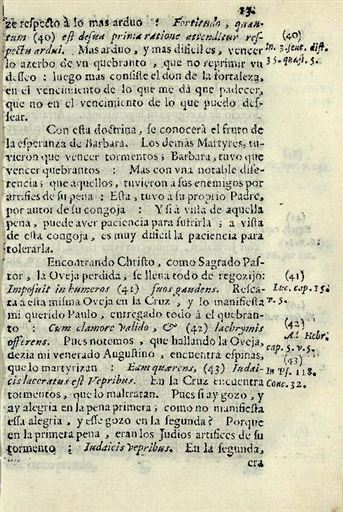 13.
ze respecto à lo mas arduo : Fortitudo, quan-
tum (40) est desua prima ratione attenditur res-
pectu ardui. Mas arduo, y mas dificil es, vencer
lo azerbo de vn quebranto, que no reprimir vn
desseo : luego mas consiste el don de la fortaleza,
en el vencimiento de lo que me dà que padecer,
que no en el vencimiento de lo que puedo des-
sear.
Con esta doctrina, se conocerà el fruto de
la esperanza de Barbara. Los demàs Martyres, tu-
vieron que vencer tormentos; Barbara, tuvo que
vencer quebrantos : Mas con vna notable dife-
rencia; que aquellos, tuvieron à sus enemigos por
artifices de su pena : Esta, tuvo à su proprio Padre,
por autor de su congoja : Y si à villa de aquella
pena, puede aver paciencia para sufrirla; a vista
de esta congoja, es muy dificil la paciencia para
tolerarla.
Encontrando Christo, como Sagrado Pas-
tor, la Oveja perdida, se llena todo de regozijo:
Imposuit in humeros (41) suos gaudens. Resca-
ta à esta misma Oveja en la Cruz, y lo manifiesta
mi querido Paulo, entregado todo à el quebran-
to : Cum clamore valido, & (42) lachrymis
offerens. Pues notemos, que hallando la Oveja,
dezia mi venerado Augustino, encuentra espinas,
que lo martyrizan : Eam quærens, (43) Iudai-
cis laceratus est Vepribus. En la Cruz encuentra
tormentos, que lo maltratan. Pues si ay gozo, y
ay alegria en la pena primera; como no manifiesta
essa alegria, y esse gozo en la segunda? Porque
en la primera pena, eran los Judios artifices de su
tormento : Iudaicis vepribus. En la segunda,
era
(40)
In. 3. sent. dist.
35. quæst. 5.
(41)
Luc. cap. 15.
v. 5.
(42)
Ad Hebr.
cap. 5. v. 5.
(43)
In Ps. 118.
Conc. 32.